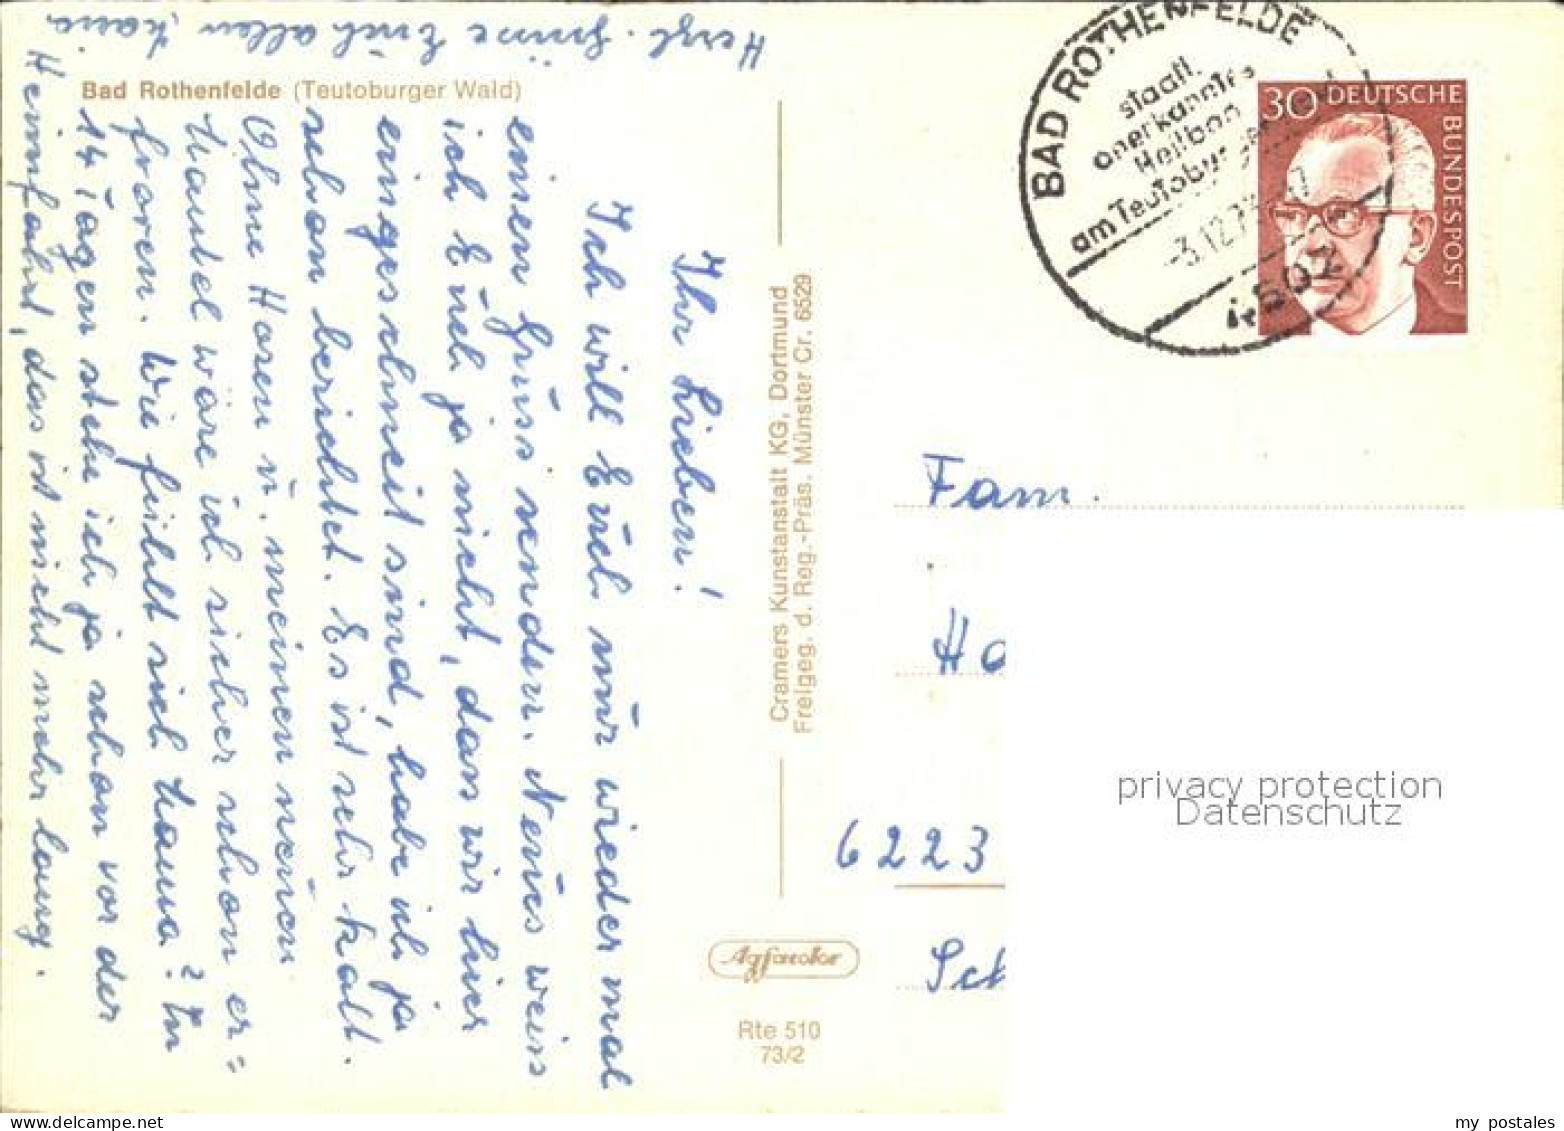 Bad Rothenfelde (Teutoburger Wald)
Ihr Lieben!
Ich will Euch nur wieder mal
einen Gruss senden. Neues weiss
ich Euch ja nicht, dass wir hier
eingeschneit sind, habe ich ja
schon berichtet. Es ist sehr kalt.
Ohne Hosen u. meinen neuen
Mantel wäre ich sicher schon er=
froren. Wie fühlt sich Hanna? In
14 Tagen stehe ich ja schon vor der
Heimfahrt, das ist nicht mehr lang.
Herzl. Grüsse Euch allen
Cramers Kunstanstalt KG, Dortmund
Freigeg. d. Reg.-Präs. Münster Cr. 6529
Agfacolor
Rte 510
73/2
BAD ROTHENFELDE
staatl.
anerkanntes
Heilbad
am Teutoburger
-3.12.7
4502
30 DEUTSCHE
BUNDESPOST
Fam.
Ha
6223
Sch
privacy protection
Datenschutz
my postales